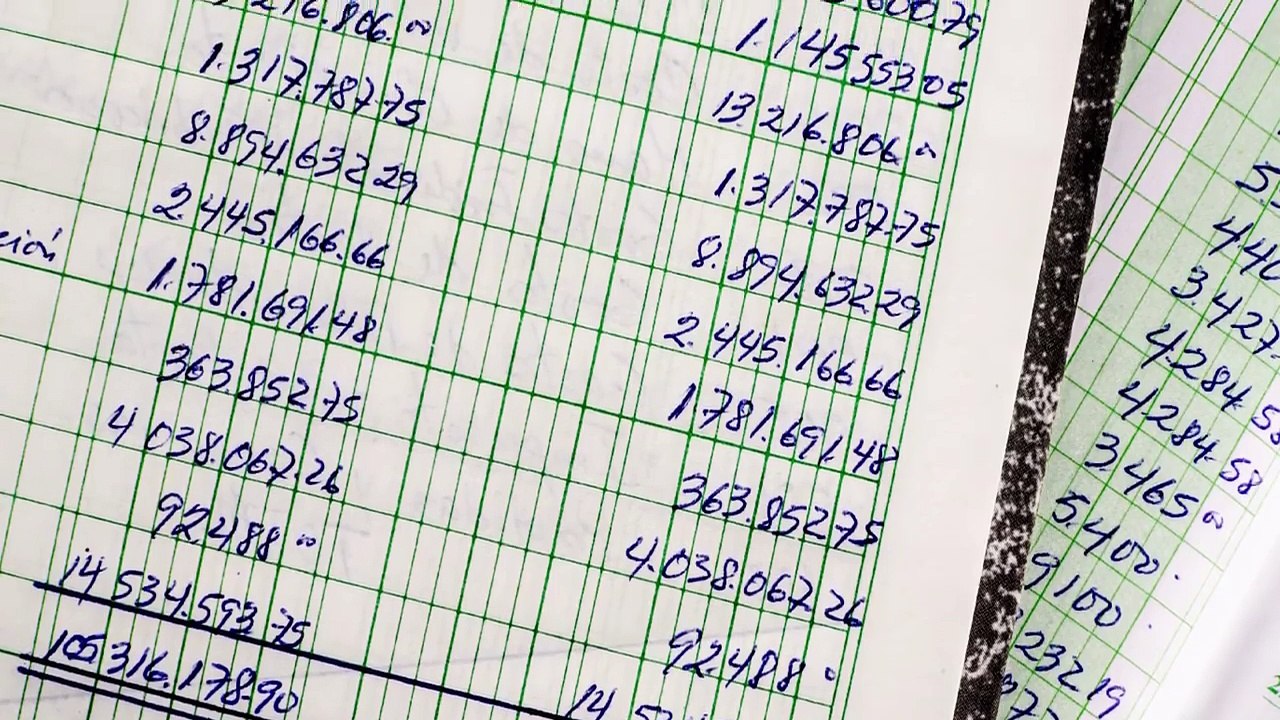 216.806.00
1.317.787.75
8.894.632 29
2.445.166.66
ción 1.781.691.48
363.852 75
4 038.067.26
92.488 00
14 534.593.75
105 316.178.90
1.145 553 05
13.216.806 00
1.317.787.75
8.894.632 29
2.445.166 66
1.781.691.48
363.852 75
4.038.067.26
92.488 00
14
440
3.427
4.284.58
4.284.58
3.465 00
5.400.
9100.
232 19